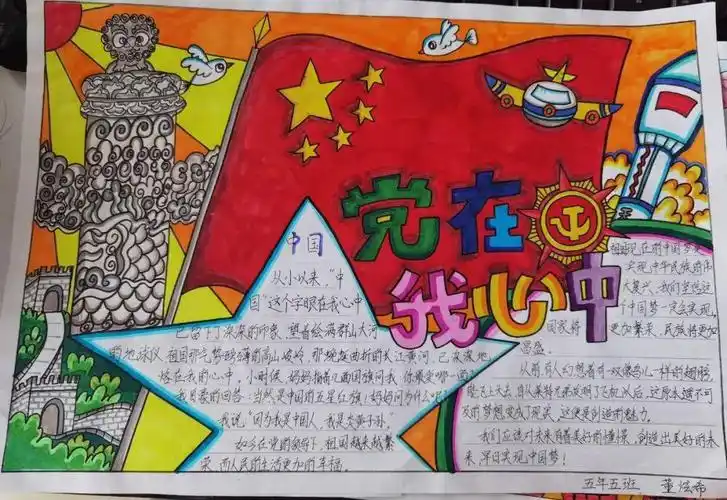 党在
我心中
中国
从小以来,“中
国”这个字眼在我心中
已留下了深深的印象,望着绘满群山大河
的地球仪,祖国那气势磅礴的高山峻岭,那蜿蜒曲折的长江黄河,已深深地
烙在我的心中。小时候,妈妈指着几面国旗问我:你最爱哪一面
我自豪的回答:当然是中国的五星红旗!妈妈问为什么呢
我说:“因为我是中国人,我是炎黄子孙。”
如今在党的领导下,祖国越来越繁
荣,而人民的生活更加的幸福。
实现在的中国梦
实现中华民族的伟
大复兴,我们坚信这
个中国梦一定会实现,
国家将更加繁荣,民族将更加
昌盛。
从前有人幻想着有一双像鸟儿一样的翅膀,
能飞上天去,自从莱特兄弟发明了飞机以后,这原本遥不可
及的梦想变成了现实。这便是创造的魅力。
我们应该对未来有着美好的憧憬,创造出美好的未
来,早日实现中国梦!
五年五班 董